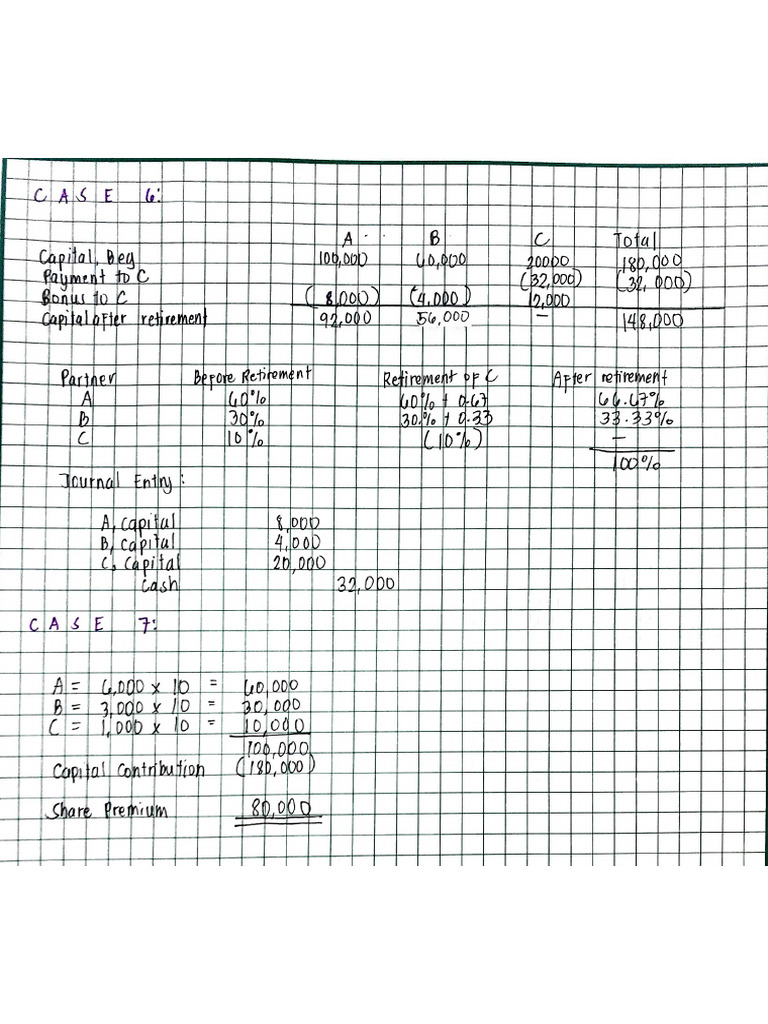 CASE 6:
A B C Total
Capital, Beg 100,000 60,000 20000 180,000
Payment to C (32,000) (32,000)
Bonus to C (8,000) (4,000) 12,000
Capital after retirement 92,000 56,000 — 148,000
Partner Before Retirement Retirement of C After retirement
A 60% 60% + 0.67 66.67%
B 30% 30.% + 0.33 33.33%
C 10% (10%) —
100%
Journal Entry:
A, Capital 8,000
B, Capital 4,000
C, Capital 20,000
Cash 32,000
CASE 7:
A = 6,000 x 10 = 60,000
B = 3,000 x 10 = 30,000
C = 1,000 x 10 = 10,000
100,000
Capital Contribution (180,000)
Share Premium 80,000